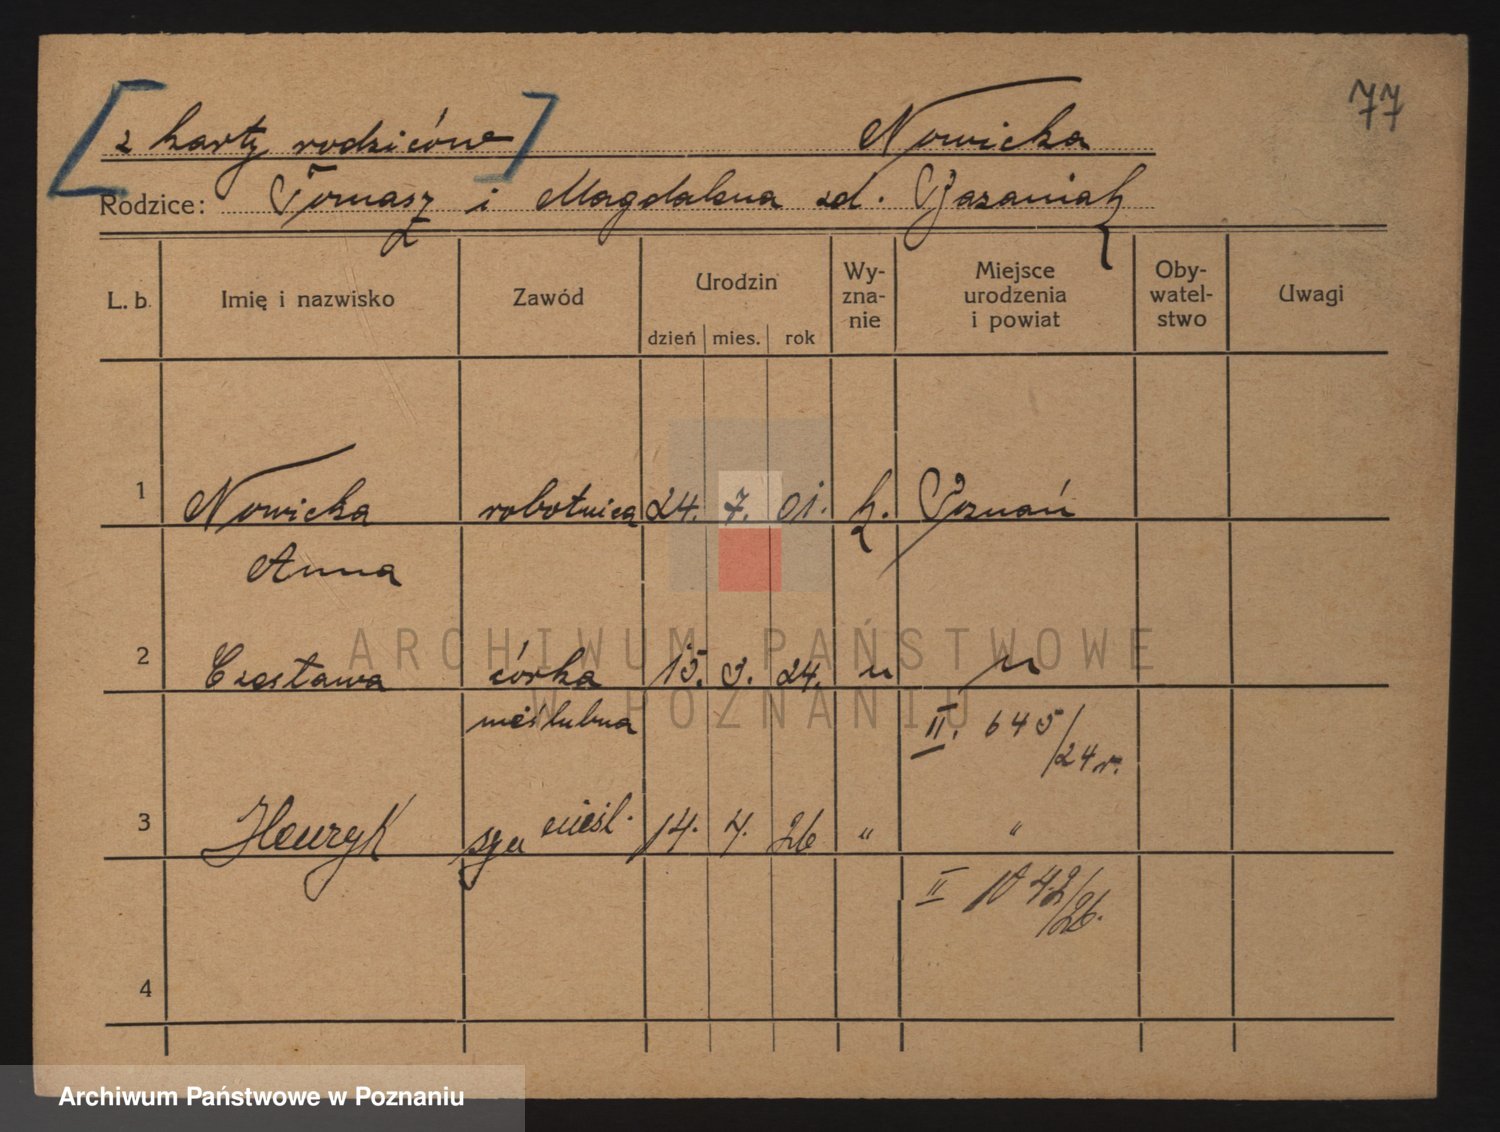 77
[z karty rodziców] Nowicka
Rodzice: Tomasz i Magdalena zd. Bazaniak
L. b. Imię i nazwisko Zawód Urodzin dzień mies. rok Wy-zna-nie Miejsce urodzenia i powiat Oby-watel-stwo Uwagi
1 Nowicka robotnica 24. 7. 01. k. Poznań
Anna
2 Czesława córka 15. 3. 24. " "
nieślubna II. 645/24 r.
3 Henryk syn nieśl. 14. 4. 26 " "
II 1042/26.
4
ARCHIWUM PAŃSTWOWE
W POZNANIU
Archiwum Państwowe w Poznaniu